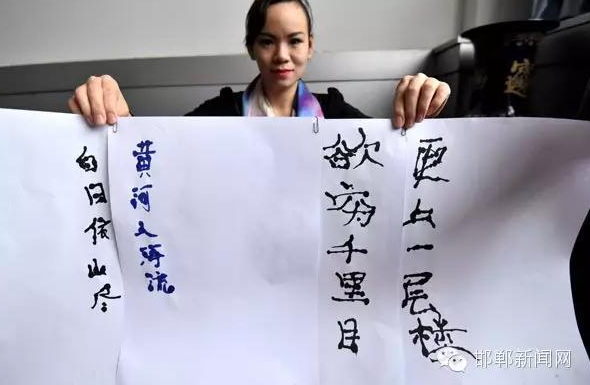 白日依山尽
黄河入海流
欲穷千里目
更上一层楼
邯郸新闻网